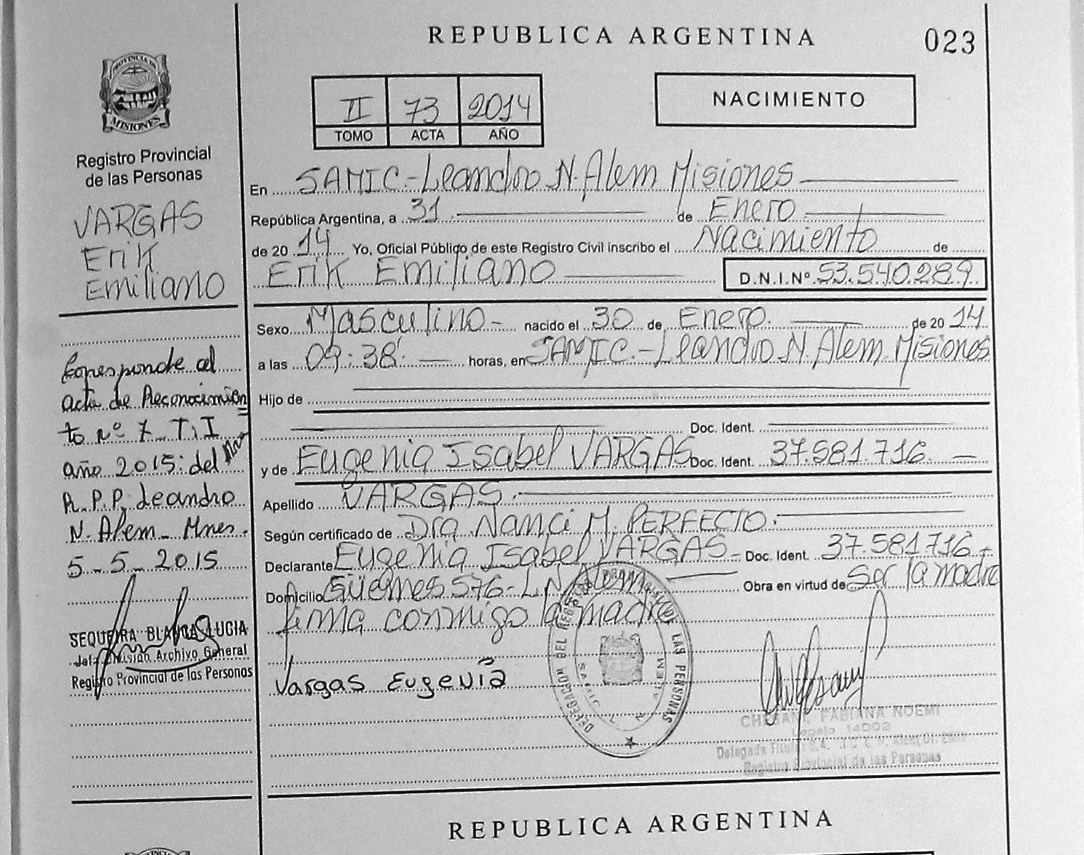 REPUBLICA ARGENTINA
023
PROVINCIA DE
MISIONES
Registro Provincial
de las Personas
VARGAS
Erik
Emiliano
II 73 2014
TOMO ACTA AÑO
NACIMIENTO
En SAMIC.-Leandro N. Alem Misiones
República Argentina, a 31 de Enero
de 20 14 Yo, Oficial Público de este Registro Civil inscribo el Nacimiento de
Erik Emiliano D.N.I.Nº 53.540.289
Sexo Masculino- nacido el 30 de Enero. de 20 14
a las 09:38' horas, en SAMIC.-Leandro N. Alem Misiones
Hijo de
Doc. Ident.
y de Eugenia Isabel VARGAS Doc. Ident. 37.581.716.
Apellido VARGAS.
Según certificado de Dra Nanci M. PERFECTO.
Declarante Eugenia Isabel VARGAS- Doc. Ident. 37.581716
Domicilio Güemes 576-L.N. Alem Obra en virtud de Ser la madre
firma conmigo la madre
Vargas Eugenia
Corresponde al
acta de Reconocimien
to Nº 7 T.I
año 2015 del
R.P.P. Leandro
N. Alem Mnes.
5-5-2015
SEQUEIRA BLANCA LUCIA
División Archivo General
Registro Provincial de las Personas
DELEGACION DEL REGISTRO PROVINCIAL DE LAS PERSONAS
SAMIC L. N. ALEM
FABIANA NOEMI
Legajo
Delegada Titular
Registro Provincial de las Personas
REPUBLICA ARGENTINA